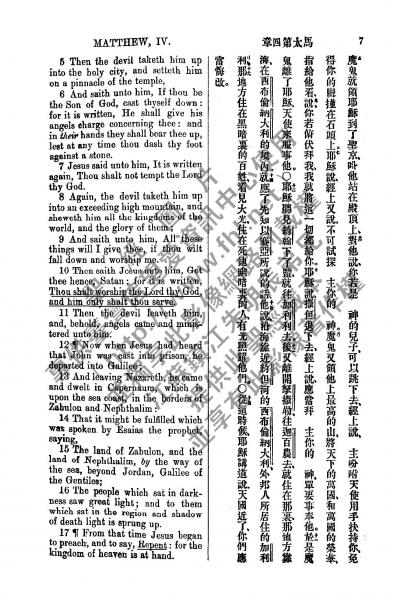 MATTHEW, IV.
章四第太馬
7
5 Then the devil taketh him up
into the holy city, and setteth him
on a pinnacle of the temple,
6 And saith unto him, If thou be
the Son of God, cast thyself down:
for it is written, He shall give his
angels charge concerning thee: and
in their hands they shall bear thee up,
lest at any time thou dash thy foot
against a stone.
7 Jesus said unto him, It is written
again, Thou shalt not tempt the Lord
thy God.
8 Again, the devil taketh him up
into an exceeding high mountain, and
sheweth him all the kingdoms of the
world, and the glory of them;
9 And saith unto him, All these
things will I give thee, if thou wilt
fall down and worship me.
10 Then saith Jesus unto him, Get
thee hence, Satan: for it is written,
Thou shalt worship the Lord thy God,
and him only shalt thou serve.
11 Then the devil leaveth him,
and, behold, angels came and minis-
tered unto him.
12 ¶ Now when Jesus had heard
that John was cast into prison, he
departed into Galilee;
13 And leaving Nazareth, he came
and dwelt in Capernaum, which is
upon the sea coast, in the borders of
Zabulon and Nephthalim:
14 That it might be fulfilled which
was spoken by Esaias the prophet,
saying,
15 The land of Zabulon, and the
land of Nephthalim, by the way of
the sea, beyond Jordan, Galilee of
the Gentiles;
16 The people which sat in dark-
ness saw great light; and to them
which sat in the region and shadow
of death light is sprung up.
17 ¶ From that time Jesus began
to preach, and to say, Repent: for the
kingdom of heaven is at hand.
魔鬼就領耶穌到了聖京、叫他站在殿頂上、對他說、你若是 神的兒子、可以跳下去、經上說、 主吩咐天使用手扶持你、免
得你的脚撞在石頭上。耶穌說、經上又說、不可試探 主你的 神。魔鬼又領他上最高的山、將天下的萬國、和萬國的榮華、
指給他看、說、你若俯伏拜我、我就將這一切都給你。耶穌說、撒但退下去、經上說、應當拜 主你的 神、單要事奉他。於是魔
鬼離了耶穌、天使來服事他。○耶穌聽見約翰下了監、就往加利利去、後又離開拿撒勒、往迦百農去、就住在那裏、那地方靠
海、在西布倫納大利的地內、就應了先知以賽亞所說的話、說、沿海靠近約但河的西布倫納大利、外邦人所居住的加利
利、那地方住在黑暗裏的百姓、看見大光、住在死地幽暗裏的人、有光照耀他們。○從這時候、耶穌講道說、天國近了、你們應
當悔改。